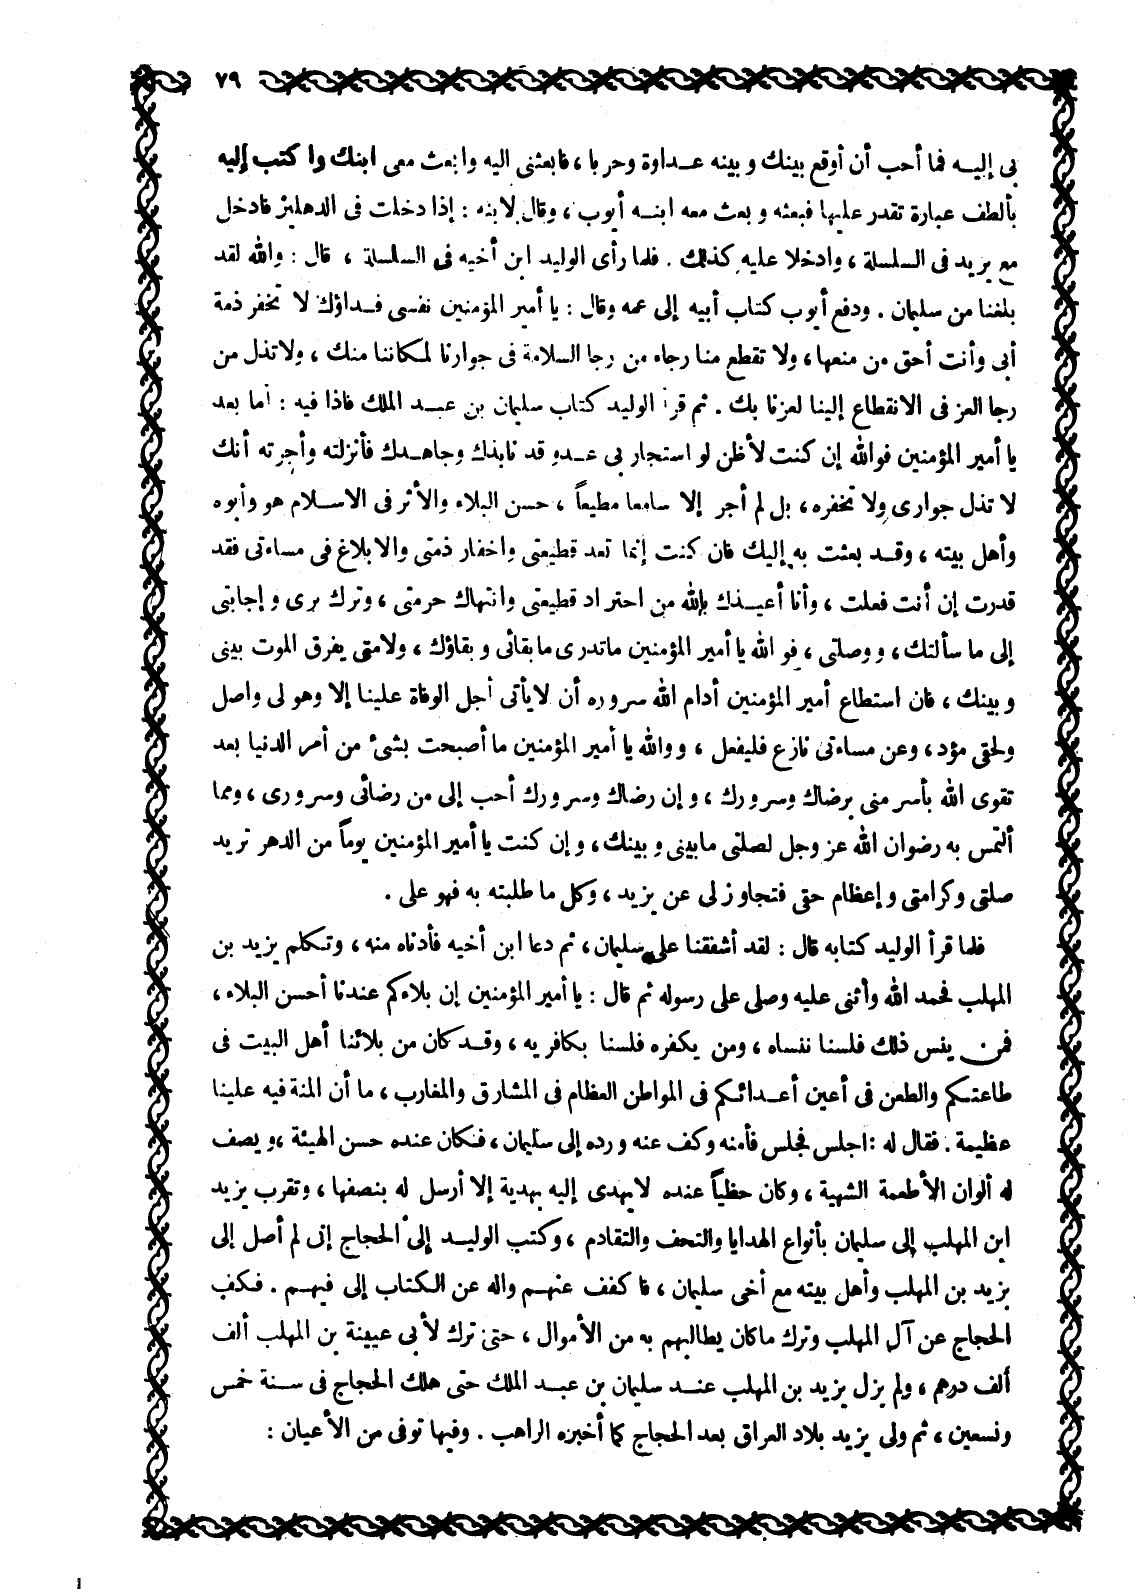 ٧٩
بى إليه فما أحب أن أوقع بينك وبينه عداوة وحربا ، فابعثنى اليه وابعث معى ابنك واكتب إليه
بألطف عبارة تقدر عليها فبعثه وبعث معه ابنه أيوب ، وقال لابنه : إذا دخلت فى الدهليز فادخل
مع يزيد فى السلسلة ، وادخلا عليه كذلك . فلما رأى الوليد ابن أخيه فى السلسلة ، قال : والله لقد
بلغنا من سليمان . ودفع أيوب كتاب أبيه إلى عمه وقال : يا أمير المؤمنين نفسى فداؤك لا تخفر ذمة
أبى وأنت أحق من منعها ، ولا تقطع منا رجاء من رجا السلامة فى جوارنا لمكاننا منك ، ولا تذل من
رجا العز فى الانقطاع إلينا لعزنا بك . ثم قرأ الوليد كتاب سليمان بن عبد الملك فاذا فيه : أما بعد
يا أمير المؤمنين فوالله إن كنت لأظن لو استجار بى عدو قد نابذك وجاهدك فأنزلته وأجرته أنك
لا تذل جوارى ولا تخفره ، بل لم أجر إلا سامعا مطيعاً ، حسن البلاء والأثر فى الاسلام هو وأبوه
وأهل بيته ، وقد بعثت به إليك فان كنت إنما تعد قطيعتى واخفار ذمتى والابلاغ فى مساءتى فقد
قدرت إن أنت فعلت ، وأنا أعيذك بالله من احتراد قطيعتى وانتهاك حرمتى ، وترك برى وإجابتى
إلى ما سألتك ، ووصلتى ، فوالله يا أمير المؤمنين ماتدرى مابقائى وبقاؤك ، ولامتى يفرق الموت بينى
وبينك ، فان استطاع أمير المؤمنين أدام الله سروره أن لا يأتى أجل الوفاة علينا إلا وهو لى واصل
ولحقى مؤد ، وعن مساءتى نازع فليفعل ، ووالله يا أمير المؤمنين ما أصبحت بشئ من أمر الدنيا بعد
تقوى الله بأسر منى برضاك وسرورك ، وإن رضاك وسرورك أحب إلى من رضائى وسرورى ، ومما
ألتمس به رضوان الله عز وجل لصلتى مابينى وبينك ، وإن كنت يا أمير المؤمنين يوماً من الدهر تريد
صلتى وكرامتى وإعظام حقى فتجاوز لى عن يزيد ، وكل ما طلبته به فهو على .
فلما قرأ الوليد كتابه قال : لقد أشفقنا على سليمان ، ثم دعا ابن أخيه فأدناه منه ، وتكلم يزيد بن
المهلب فحمد الله وأثنى عليه وصلى على رسوله ثم قال : يا أمير المؤمنين إن بلاءكم عندنا أحسن البلاء ،
فمن ينس ذلك فلسنا ننساه ، ومن يكفره فلسنا بكافريه ، وقد كان من بلائنا أهل البيت فى
طاعتكم والطعن فى أعين أعدائكم فى المواطن العظام فى المشارق والمغارب ، ما أن المنة فيه علينا
عظيمة . فقال له : اجلس فجلس فأمنه وكف عنه ورده إلى سليمان ، فكان عنده حسن الهيئة ، ويصف
له ألوان الأطعمة الشهية ، وكان حظياً عنده لا يهدى إليه بهدية إلا أرسل له بنصفها ، وتقرب يزيد
ابن المهلب إلى سليمان بأنواع الهدايا والتحف والتقادم ، وكتب الوليد إلى الحجاج إنى لم أصل إلى
يزيد بن المهلب وأهل بيته مع أخى سليمان ، فاكفف عنهم واله عن الكتاب إلى فيهم . فكف
الحجاج عن آل المهلب وترك ماكان يطالبهم به من الأموال ، حتى ترك لأبى عيينة بن المهلب ألف
ألف درهم ، ولم يزل يزيد بن المهلب عند سليمان بن عبد الملك حتى هلك الحجاج فى سنة خمس
وتسعين ، ثم ولى يزيد بلاد العراق بعد الحجاج كما أخبره الراهب . وفيها توفى من الأعيان :